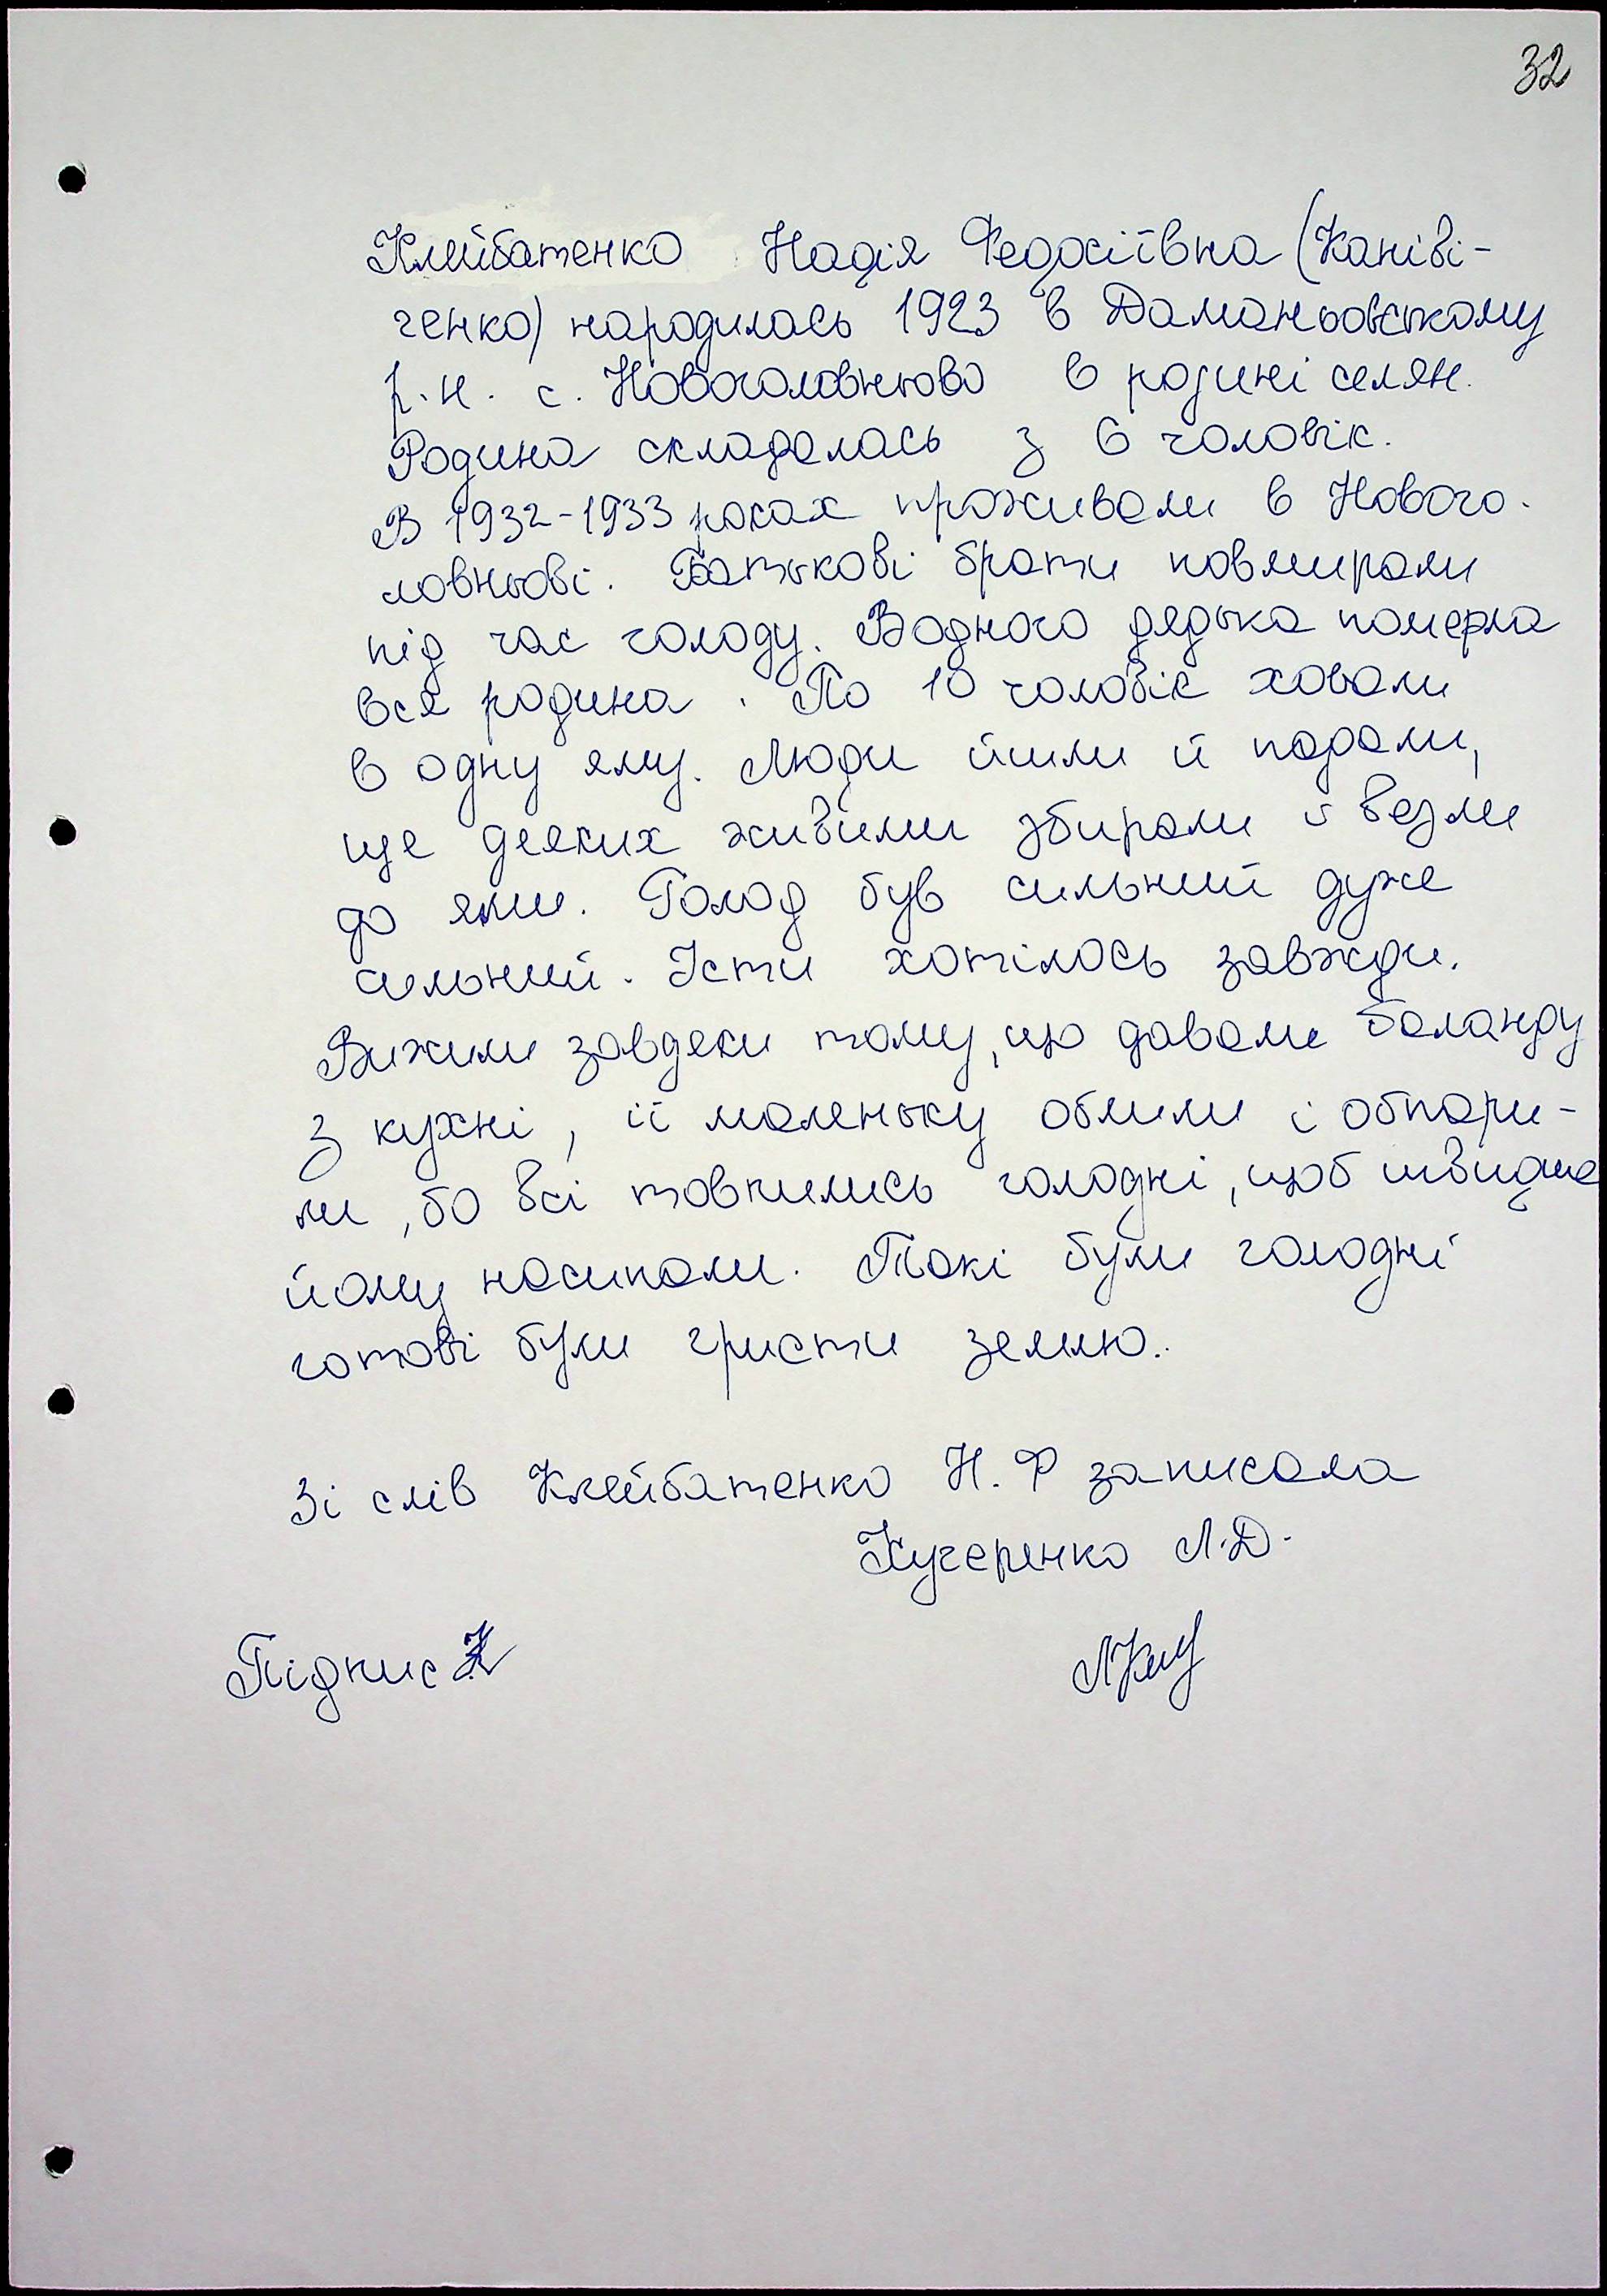 32
Клейбатенко Надія Федосіївна (Каніві-
ченко) народилась 1923 в Даманьовському
р.н. с. Новоголовньово в родині селян.
Родина складалась з 6 чоловік.
В 1932-1933 роках проживали в Нового-
ловньові. Батькові брати повмирали
під час голоду. Водного дядька померла
вся родина. По 10 чоловік ховали
в одну яму. Люди йшли й падали,
ще деяких живими збирали і везли
до ями. Голод був сильний дуже
сильний. Їсти хотілось завжди.
Вижили завдяки тому, що давали баланду
з кухні, її маленьку облили і обпари-
ли, бо всі товпились голодні, щоб швидше
йому насипали. Такі були голодні
готові були гристи землю.
Зі слів Клейбатенко Н.Ф записала
Кучеренко Л.Д.
Підпис